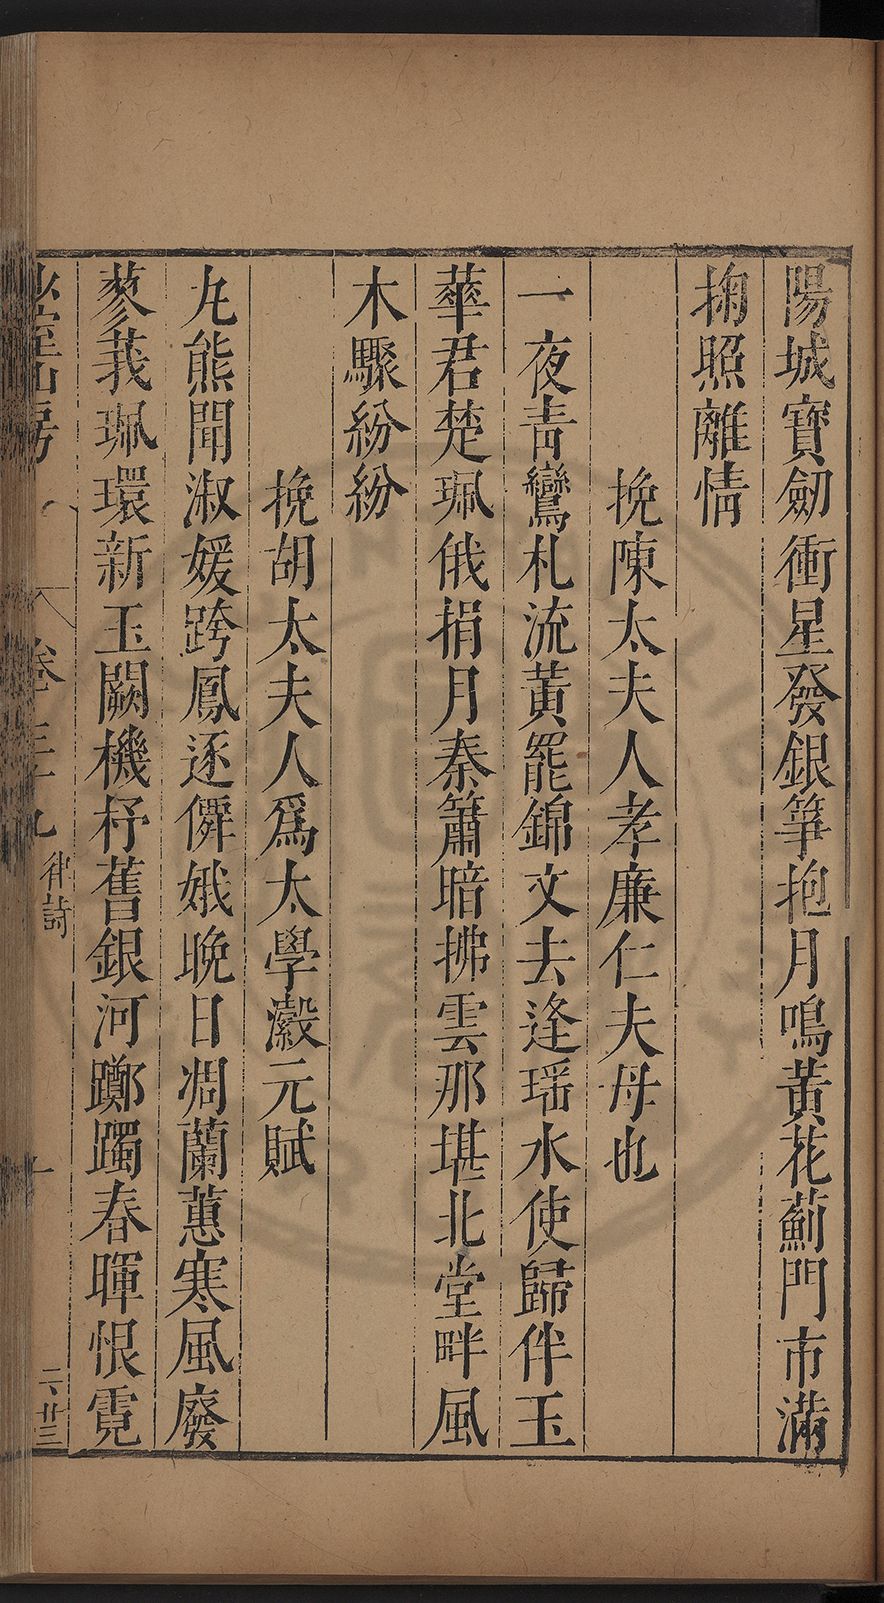 陽城寶劒衝星發銀筝抱月鳴黃花薊門市滿
掬照離情
挽陳太夫人孝廉仁夫母也
一夜青鸞札流黃罷錦文去逢瑶水使歸伴玉
華君楚珮俄捐月秦簫暗拂雲那堪北堂畔風
木驟紛紛
挽胡太夫人爲太學瀫元賦
丸熊聞淑媛跨鳳逐僊娥晚日凋蘭蕙寒風廢
蓼莪珮環新玉闕機杼舊銀河躑躅春暉恨霓
山房
卷三十九
律詩